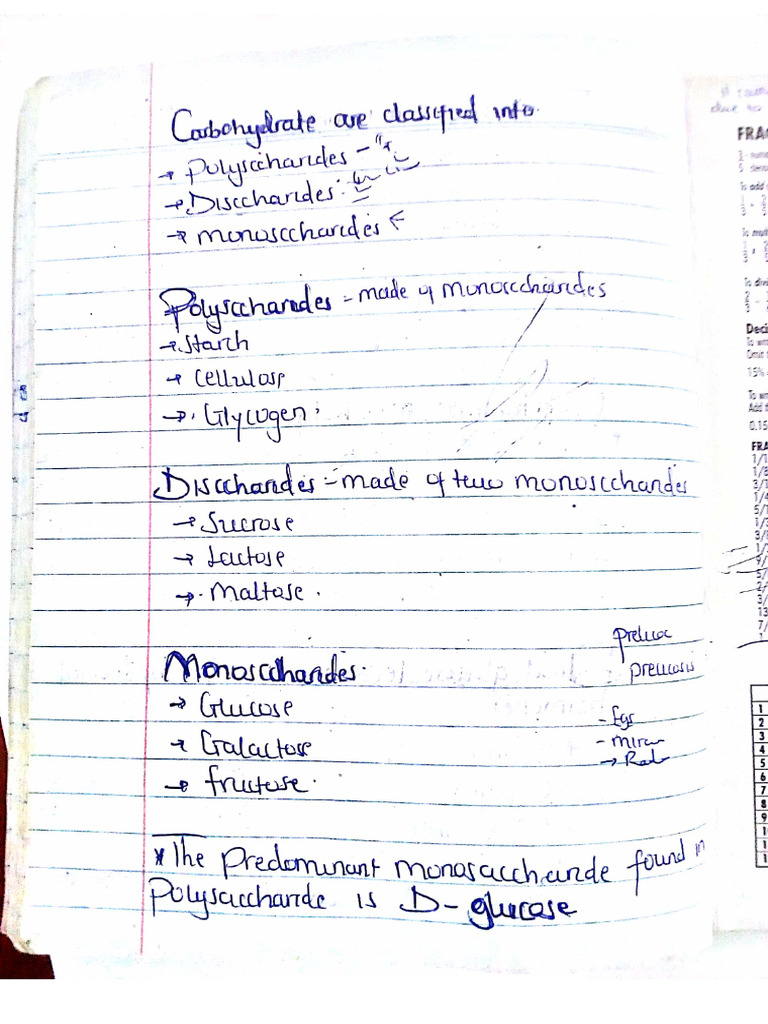 Carbohydrate are classified into.
→ Polysccharides -
→ Disccharides:
→ monosccharides
Polysccharides - made of monosccharides
→ Starch
→ Cellulose
→ Glycogen.
Disccharides - made of two monosccharides
→ Sucrose
→ Lactose
→ Maltose.
Monosccharides.
→ Glucose
→ Galactose
→ fructose.
- Egs
* The Predominant monosaccharide found in
Polysaccharide is D-glucose
FRA
To add
To mult
To divi
Deci
15%
0.15
FRA